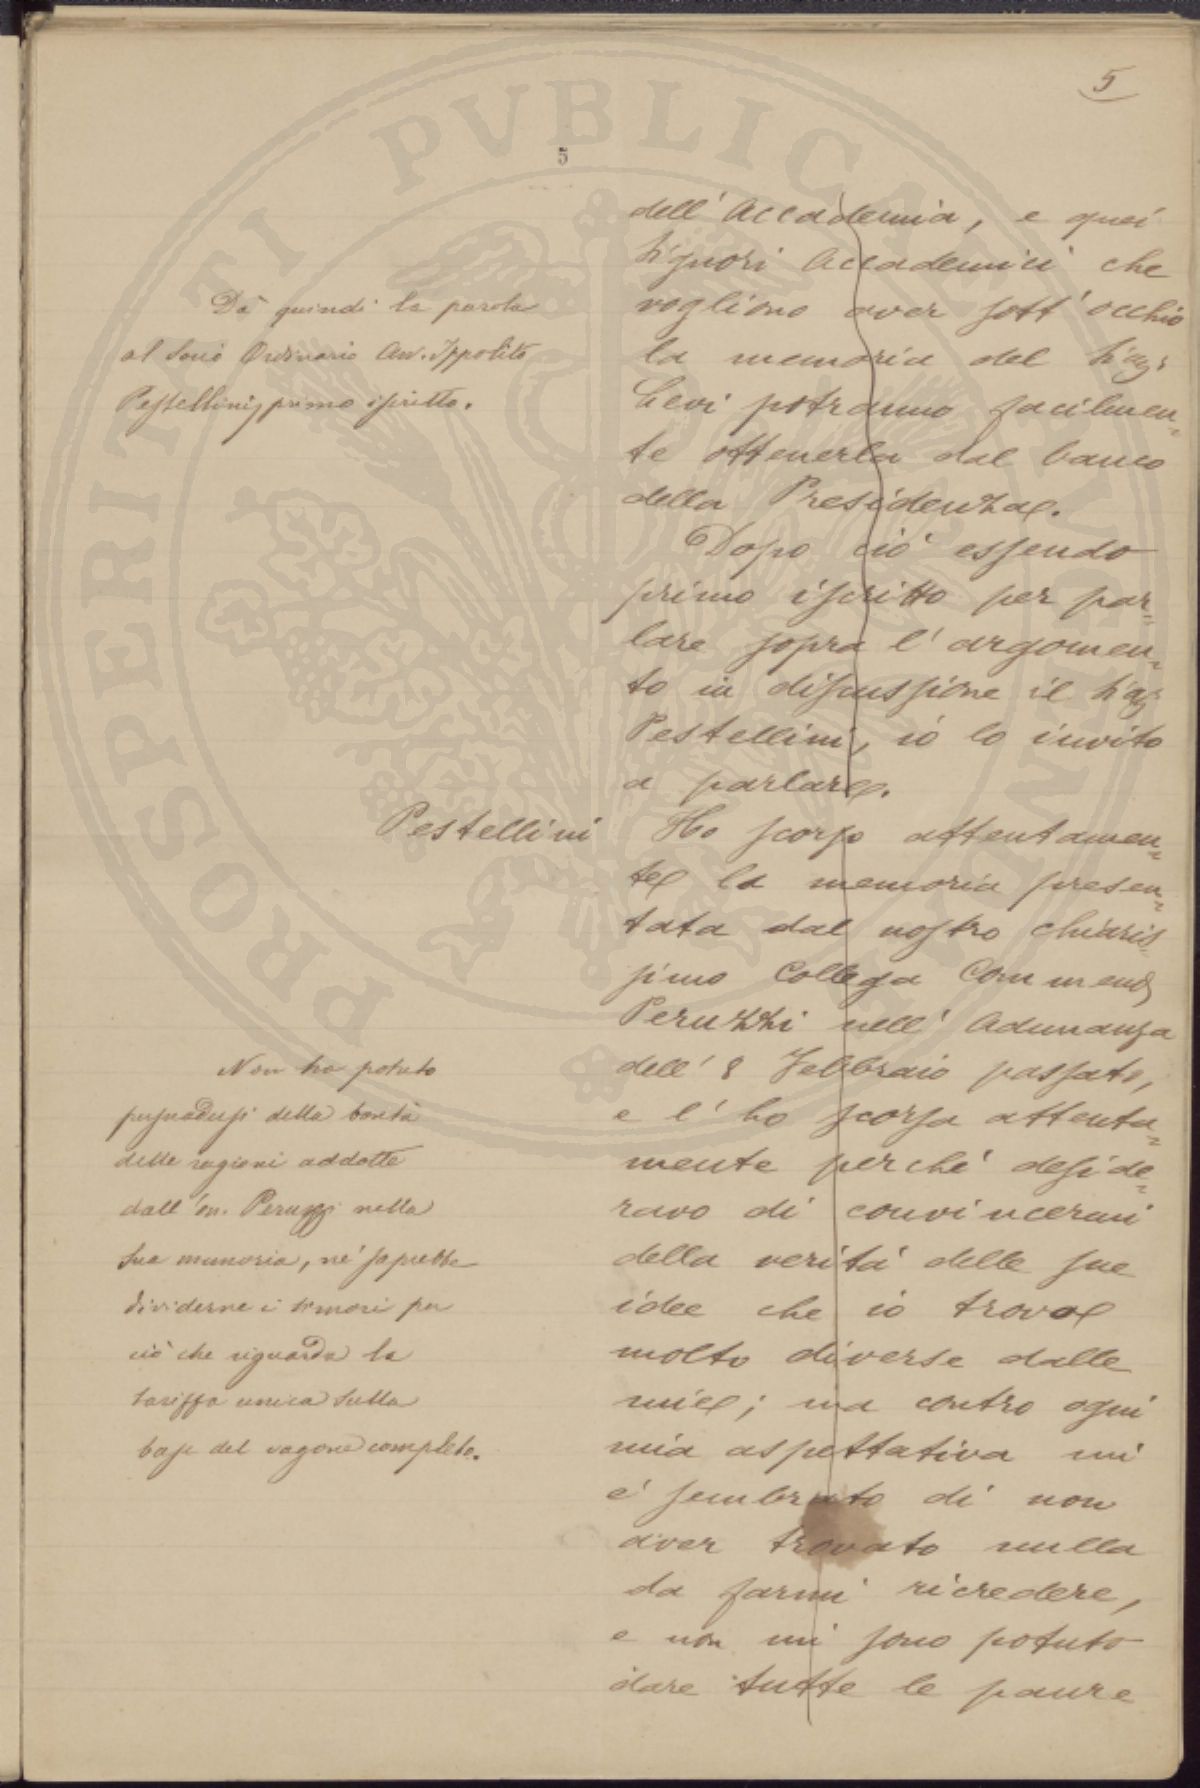 5
5
dell'Accademia, e quei
Signori Accademici che
vogliono aver sott'occhio
la memoria del Sig.
Levi potranno facilmen=
te ottenerla dal banco
della Presidenza.
Dopo ciò essendo
primo iscritto per par=
lare sopra l'argomen=
to in discussione il Sig.
Pestellini, io lo invito
a parlare.
Dà quindi la parola
al Socio Ordinario Avv. Ippolito
Pestellini, primo iscritto.
Pestellini
Ho scorso attentamen=
te la memoria presen=
tata dal nostro chiaris=
simo Collega Commend.
Peruzzi nell'Adunanza
dell'8 Febbraio passato,
e l'ho scorsa attenta=
mente perché deside=
ravo di convincermi
della verità delle sue
idee che io trovo
molto diverse dalle
mie; ma contro ogni
mia aspettativa mi
è sembrato di non
aver trovato nulla
da farmi ricredere,
e non mi sono potuto
dare tutte le paure
Non ha potuto
persuadersi della bontà
delle ragioni addotte
dall'on. Peruzzi nella
sua memoria, nè saprebbe
dividerne i timori per
ciò che riguarda la
tariffa unica sulla
base del vagone completo.
PROSPERITATI PVBLICAE AVGENDAE